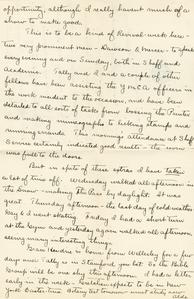 opportunity, although I really haven't much of a
show to make good.
This is to be a kind of Revival-week here -
two very prominent men - Dawson & Mercer - to speak
every evening and on Sunday, both in Sheff and
Academic. Tully and I and a couple of other
fellows have been assisting the YMCA officers in
the work incident to the occasion, and have been
detailed to all sorts of tasks from bossing the Printer
and making mimeographs to licking stamps and
running errands. This morning's attendance at Sheff
Service certainly indicated good results - the room
was full to the doors.
But in spite of these extras I have taken
a lot of time off. Wednesday walked all afternoon in
the snow - making the Pine by daylight. It was
great. Thursday afternoon - the last day of cold weather
Ray & I went skating. Friday I had a short turn
at the gym and yesterday again walked all afternoon
seeing many interesting things.
Jean Sanders is down from Wellesley for a few
days and Tully is in Stamford, you bet. So the Bible
Group will be one shy this afternoon. I had a letter
early in the week - Gordalen appears to be in New
York Easter time.